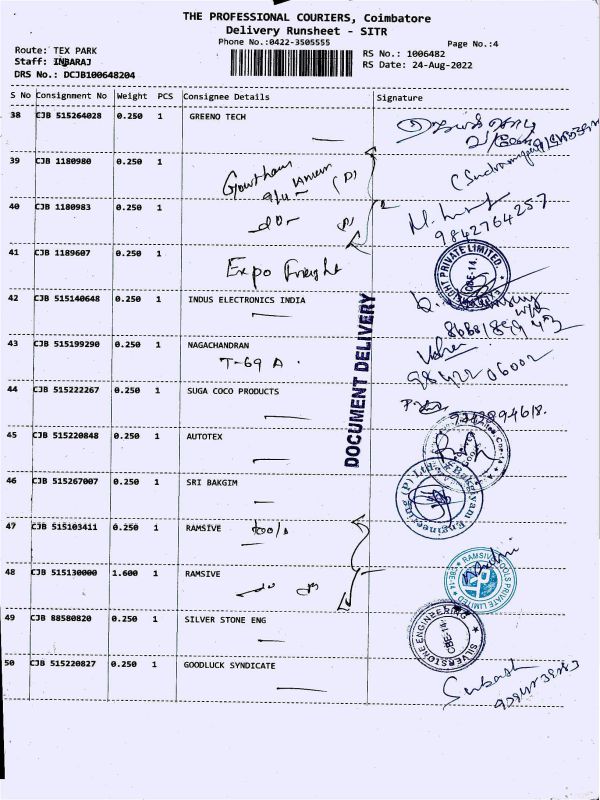 THE PROFESSIONAL COURIERS, Coimbatore
Delivery Runsheet - SITR
Phone No.:0422-3505555
Page No.:4
Route: TEX PARK
RS No.: 1006482
Staff: INBARAJ
RS Date: 24-Aug-2022
DRS No.: DCJB100648204
S No Consignment No Weight PCS Consignee Details Signature
38 CJB 515264028 0.250 1 GREENO TECH
39 CJB 1180980 0.250 1
Gowtham
(P)
40 CJB 1180983 0.250 1
-do- (P)
9842764257
41 CJB 1189607 0.250 1
Expo Freight
PRIVATE LIMITED
CBE-14.
42 CJB 515140648 0.250 1 INDUS ELECTRONICS INDIA
43 CJB 515199290 0.250 1 NAGACHANDRAN
T-69 A.
Usha
98422 06002
DOCUMENT DELIVERY
44 CJB 515222267 0.250 1 SUGA COCO PRODUCTS
45 CJB 515220848 0.250 1 AUTOTEX
46 CJB 515267007 0.250 1 SRI BAKGIM
Bakgiyam Engineering (P) Ltd.
47 CJB 515103411 0.250 1 RAMSIVE
48 CJB 515130000 1.600 1 RAMSIVE
-do- (P)
RAMSIVE TOOLS PRIVATE LIMITED
CBE-14
49 CJB 88580820 0.250 1 SILVER STONE ENG
SILVERSTONE ENGINEERING
CBE-14
50 CJB 515220827 0.250 1 GOODLUCK SYNDICATE
Subash